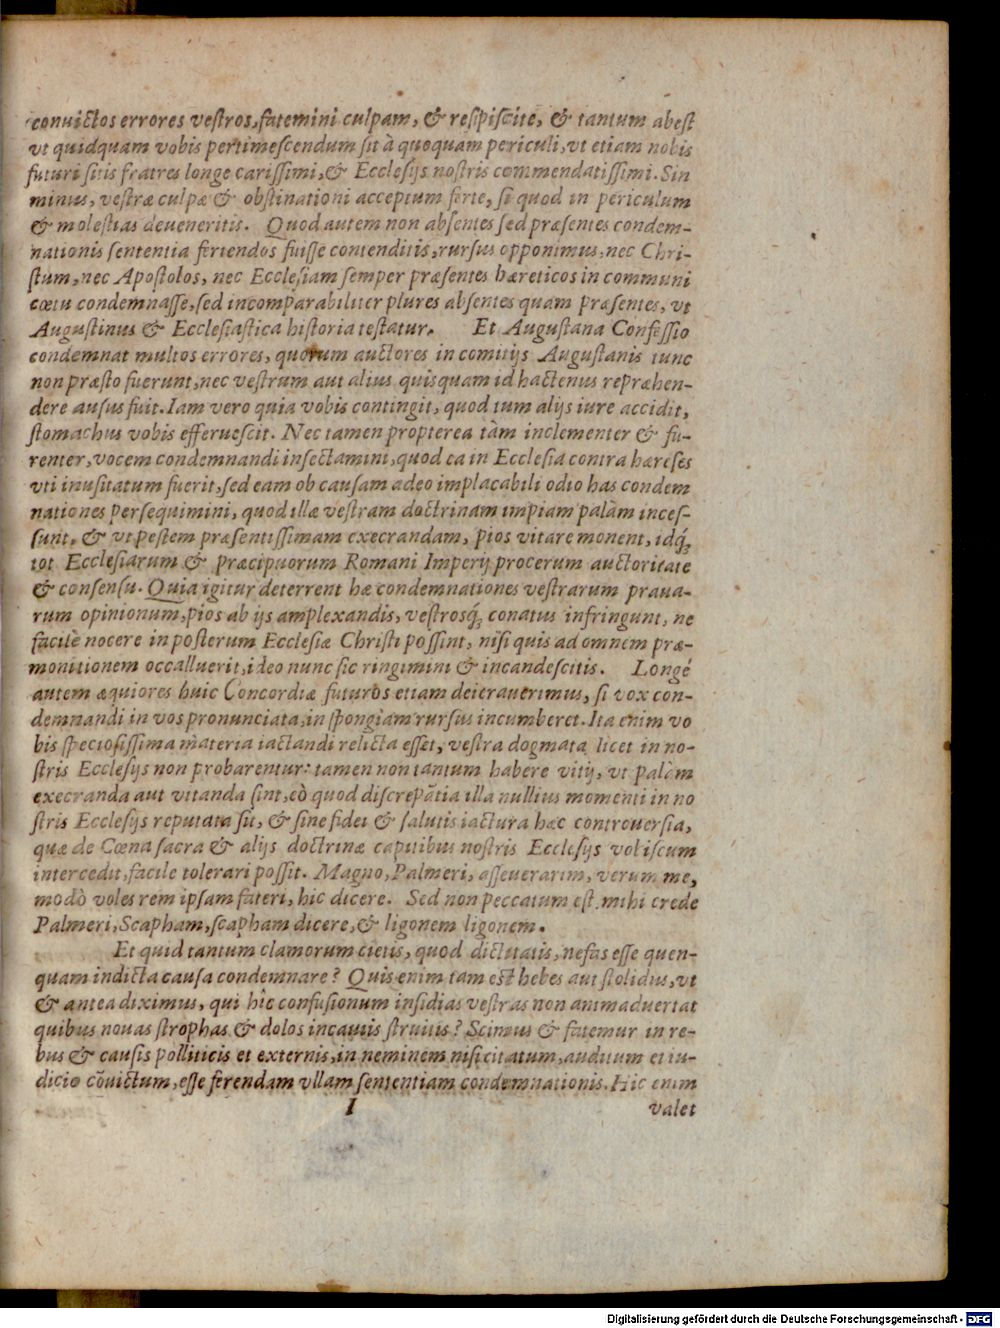 convictos errores vestros, fatemini culpam, & resipiscite, & tantum abest
vt quidquam vobis pertimescendum sit à quoquam periculi, vt etiam nobis
futuri sitis fratres longe carissimi, & Ecclesijs nostris commendatissimi. Sin
minus, vestræ culpæ & obstinationi acceptum ferte, si quod in periculum
& molestias deueneritis. Quod autem non absentes sed præsentes condem-
nationis sententia feriendos fuisse contenditis, rursus opponimus, nec Chri-
stum, nec Apostolos, nec Ecclesiam semper præsentes hæreticos in communi
cœtu condemnasse, sed incomparabiliter plures absentes quam præsentes, vt
Augustinus & Ecclesiastica historia testatur. Et Augustana Confessio
condemnat multos errores, quorum auctores in comitijs Augustanis tunc
non præsto fuerunt, nec vestrum aut alius quisquam id hactenus repræhen-
dere ausus fuit. Iam vero quia vobis contingit, quod tum alijs iure accidit,
stomachus vobis efferuescit. Nec tamen propterea tàm inclementer & fu-
renter, vocem condemnandi insectamini, quod ea in Ecclesia contra hæreses
vti inusitatum fuerit, sed eam ob causam adeo implacabili odio has condem
nationes persequimini, quod illæ vestram doctrinam impiam palàm inces-
sunt, & vt pestem præsentissimam execrandam, pios vitare monent, idq́;
tot Ecclesiarum & præcipuorum Romani Imperij procerum auctoritate
& consensu. Quia igitur deterrent hæ condemnationes vestrarum praua-
rum opinionum, pios ab ijs amplexandis, vestrosq́; conatus infringunt, ne
facilè nocere in posterum Ecclesiæ Christi possint, nisi quis ad omnem præ-
monitionem occalluerit, ideo nunc sic ringimini & incandescitis. Longé
autem æquiores huic Concordiæ futuros etiam deierauerimus, si vox con-
demnandi in vos pronunciata, in spongiam rursus incumberet. Ita enim vo
bis speciosissima materia iactandi relicta esset, vestra dogmata licet in no-
stris Ecclesijs non probarentur: tamen non tantum habere vitij, vt palàm
execranda aut vitanda sint, eò quod discrepãtia illa nullius momenti in no
stris Ecclesijs reputata sit, & sine fidei & salutis iactura hæc controuersia,
quæ de Cœna sacra & alijs doctrinæ capitibus nostris Ecclesijs vobiscum
intercedit, facile tolerari possit. Magno, Palmeri, asseuerarim, verum me,
modò voles rem ipsam fateri, hic dicere. Sed non peccatum est, mihi crede
Palmeri, Scapham, scapham dicere, & ligonem ligonem.
Et quid tantum clamorum cietis, quod dictitatis, nefas esse quen-
quam indicta causa condemnare? Quis enim tam est hebes aut stolidus, vt
& antea diximus, qui hîc confusionum insidias vestras non animaduertat
quibus nouas strophas & dolos incautis struitis? Scimus & fatemur in re-
bus & causis polliticis et externis, in neminem nisi citatum, auditum et iu-
dicio cõuictum, esse ferendam vllam sententiam condemnationis. Hic enim
I valet
Digitalisierung gefördert durch die Deutsche Forschungsgemeinschaft - DFG